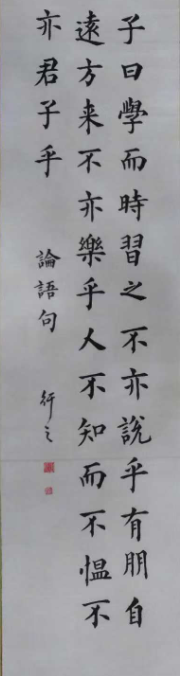 子曰學而時習之不亦說乎有朋自
遠方来不亦樂乎人不知而不愠不
亦君子乎
論語句
行之